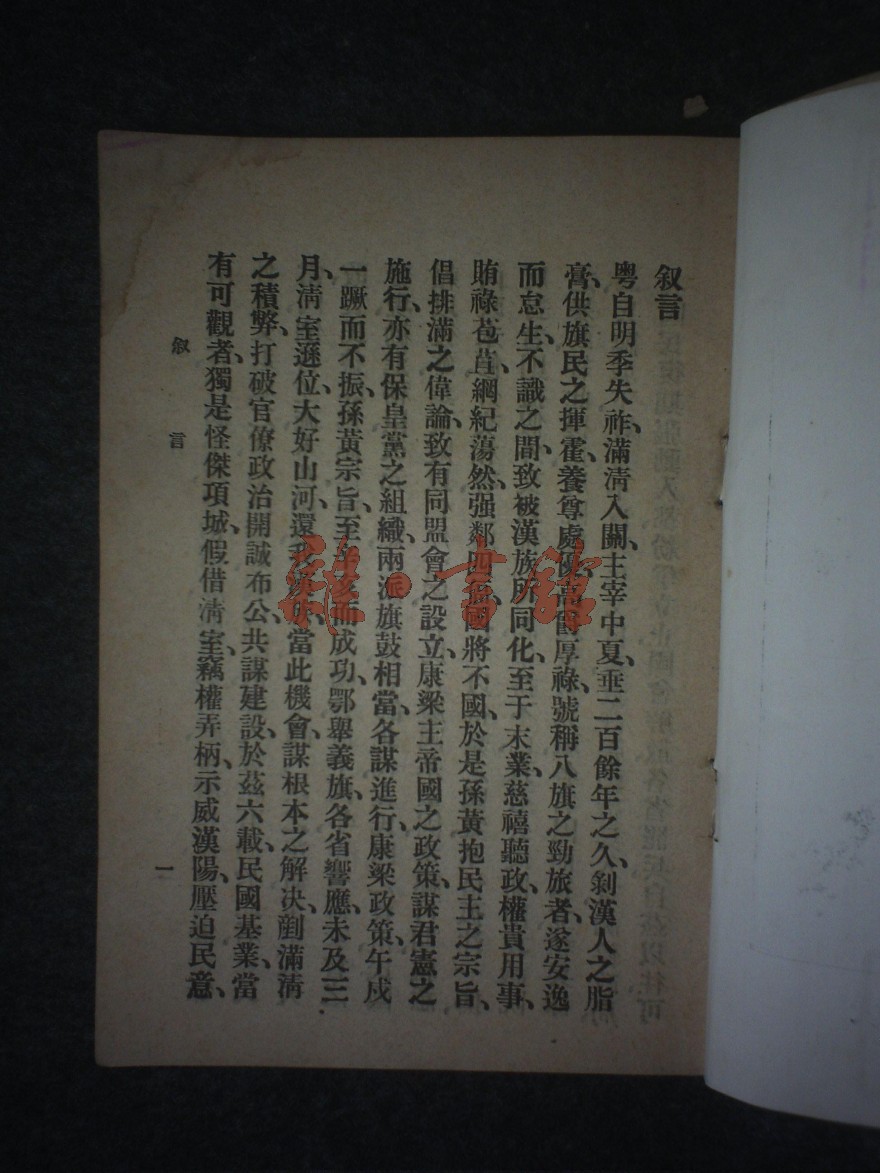 叙言
粤自明季失祚、滿淸入關、主宰中夏、垂二百餘年之久、剝漢人之脂
膏、供旗民之揮霍、養尊處優、高爵厚祿、號稱八旗之勁旅者、遂安逸
而怠生、不識之間、致被漢族所同化、至于末業、慈禧聽政、權貴用事、
賄祿苞苴、綱紀蕩然、强鄰四 國將不國、於是孫黃抱民主之宗旨、
倡排滿之偉論、致有同盟會之設立、康梁主帝國之政策、謀君憲之
施行、亦有保皇黨之組織、兩派旗鼓相當、各謀進行、康梁政策、午戍
一蹶而不振、孫黃宗旨、至辛亥而成功、鄂舉義旗、各省響應、未及三
月、淸室遜位、大好山河、還我漢族、當此機會、謀根本之解决、剷滿淸
之積弊、打破官僚政治、開誠布公、共謀建設、於茲六載、民國基業、當
有可觀者、獨是怪傑項城、假借淸室、竊權弄柄、示威漢陽、壓迫民意、
叙言
一
雜·書館